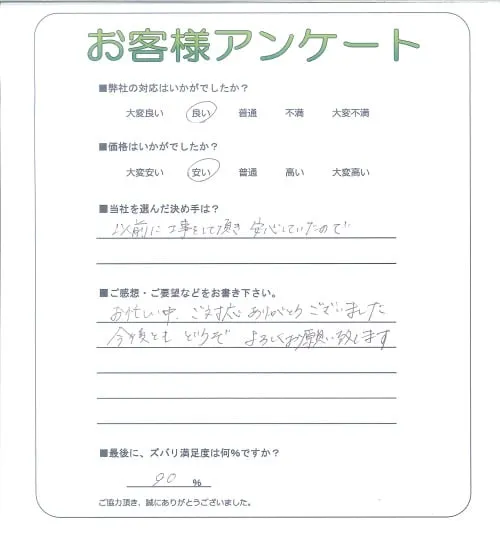 お客様アンケート
■弊社の対応はいかがでしたか？
大変良い 良い 普通 不満 大変不満
■価格はいかがでしたか？
大変安い 安い 普通 高い 大変高い
■当社を選んだ決め手は？
以前に工事をして頂き 安心していたので
■ご感想・ご要望などをお書き下さい。
お忙い中、ご対応ありがとうございました
今後とも どうぞ よろしくお願い致します
■最後に、ズバリ満足度は何%ですか？
90 %
ご協力頂き、誠にありがとうございました。